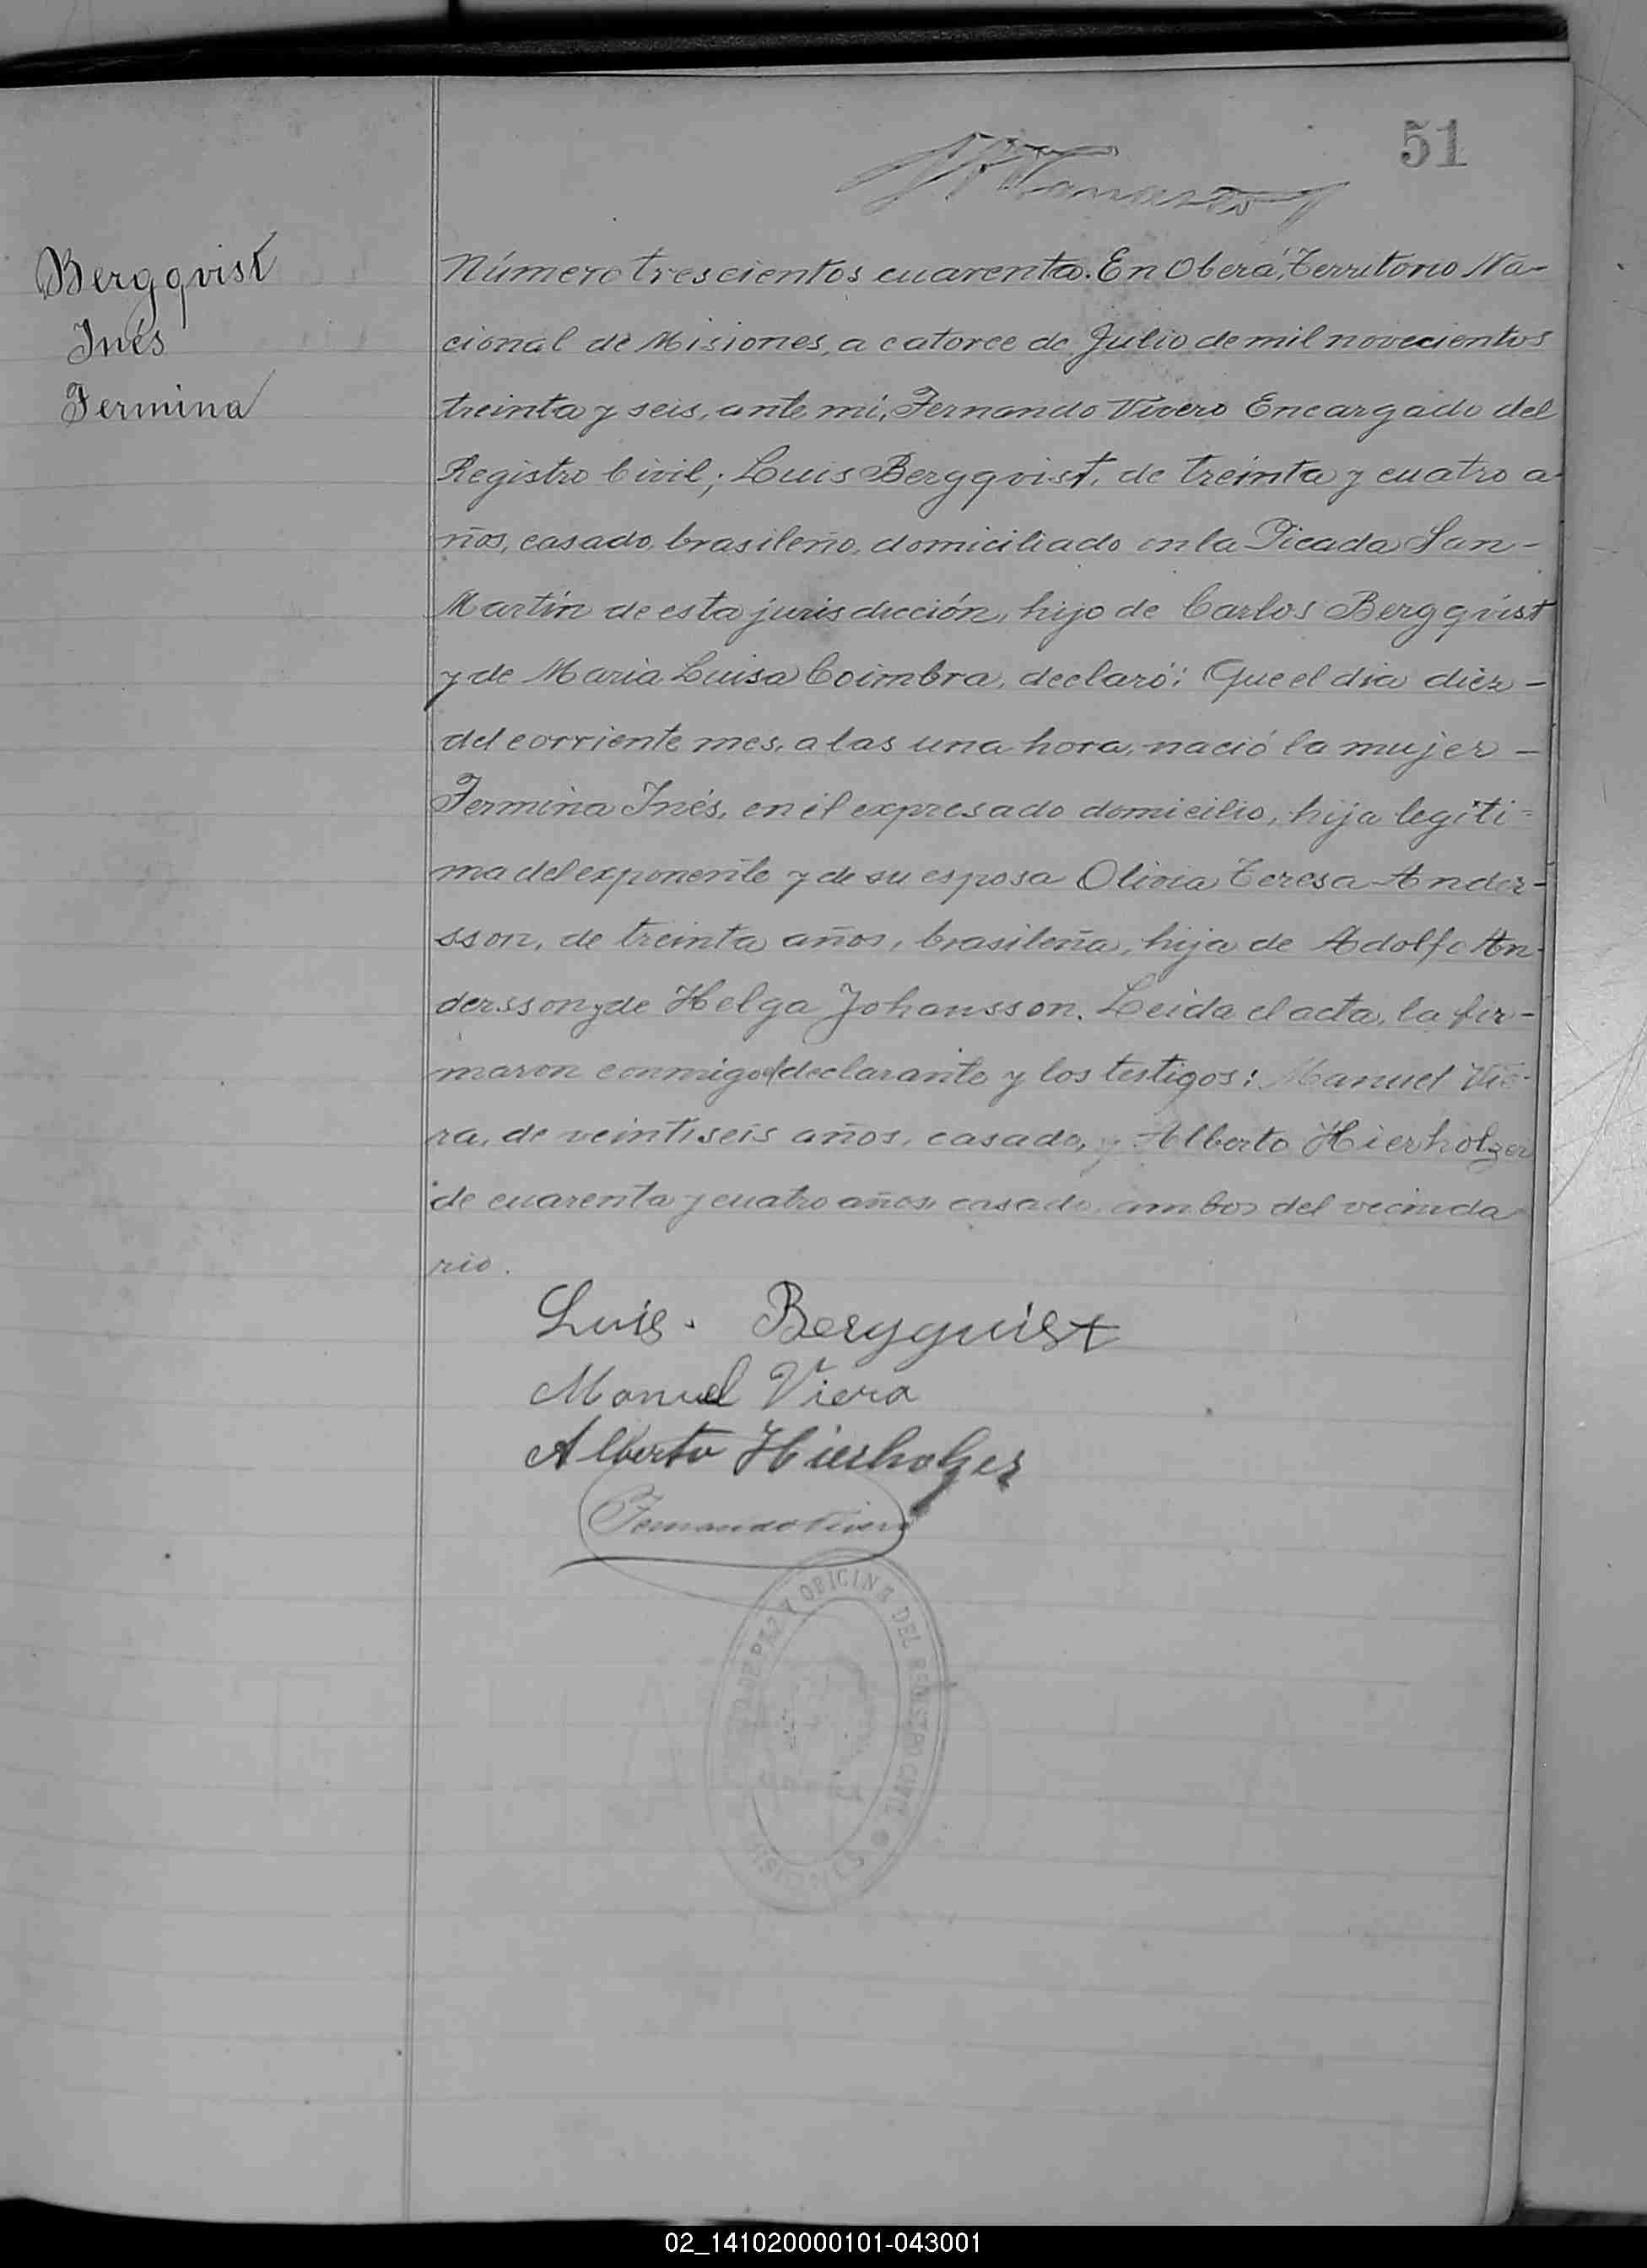 51
Bergqvist
Inés
Fermina
Número trescientos cuarenta. En Oberá, Territorio Na-
cional de Misiones, a catorce de Julio de mil novecientos
treinta y seis, ante mi, Fernando Vivero Encargado del
Registro Civil; Luis Bergqvist, de treinta y cuatro a-
ños, casado, brasileño, domiciliado en la Picada San-
Martín de esta jurisdicción, hijo de Carlos Bergqvist
y de Maria Luisa Coimbra, declaró: Que el dia diez-
del corriente mes, a las una hora, nació la mujer-
Fermina Inés, en el expresado domicilio, hija legiti-
ma del exponente y de su esposa Olivia Teresa Ander-
sson, de treinta años, brasileña, hija de Adolfo An-
dersson y de Helga Johansson. Leida el acta, la fir-
maron conmigo el declarante y los testigos: Manuel Vie-
ra, de veintiseis años, casado, y Alberto Hierholzer
de cuarenta y cuatro años, casado, ambos del vecinda
rio.
Luis. Bergquist
Manuel Viera
Alberto Hierholzer
Fernando Vivero
DE PAZ Y OFICINA DEL REGISTRO CIVIL
MISIONES
02_141020000101-043001